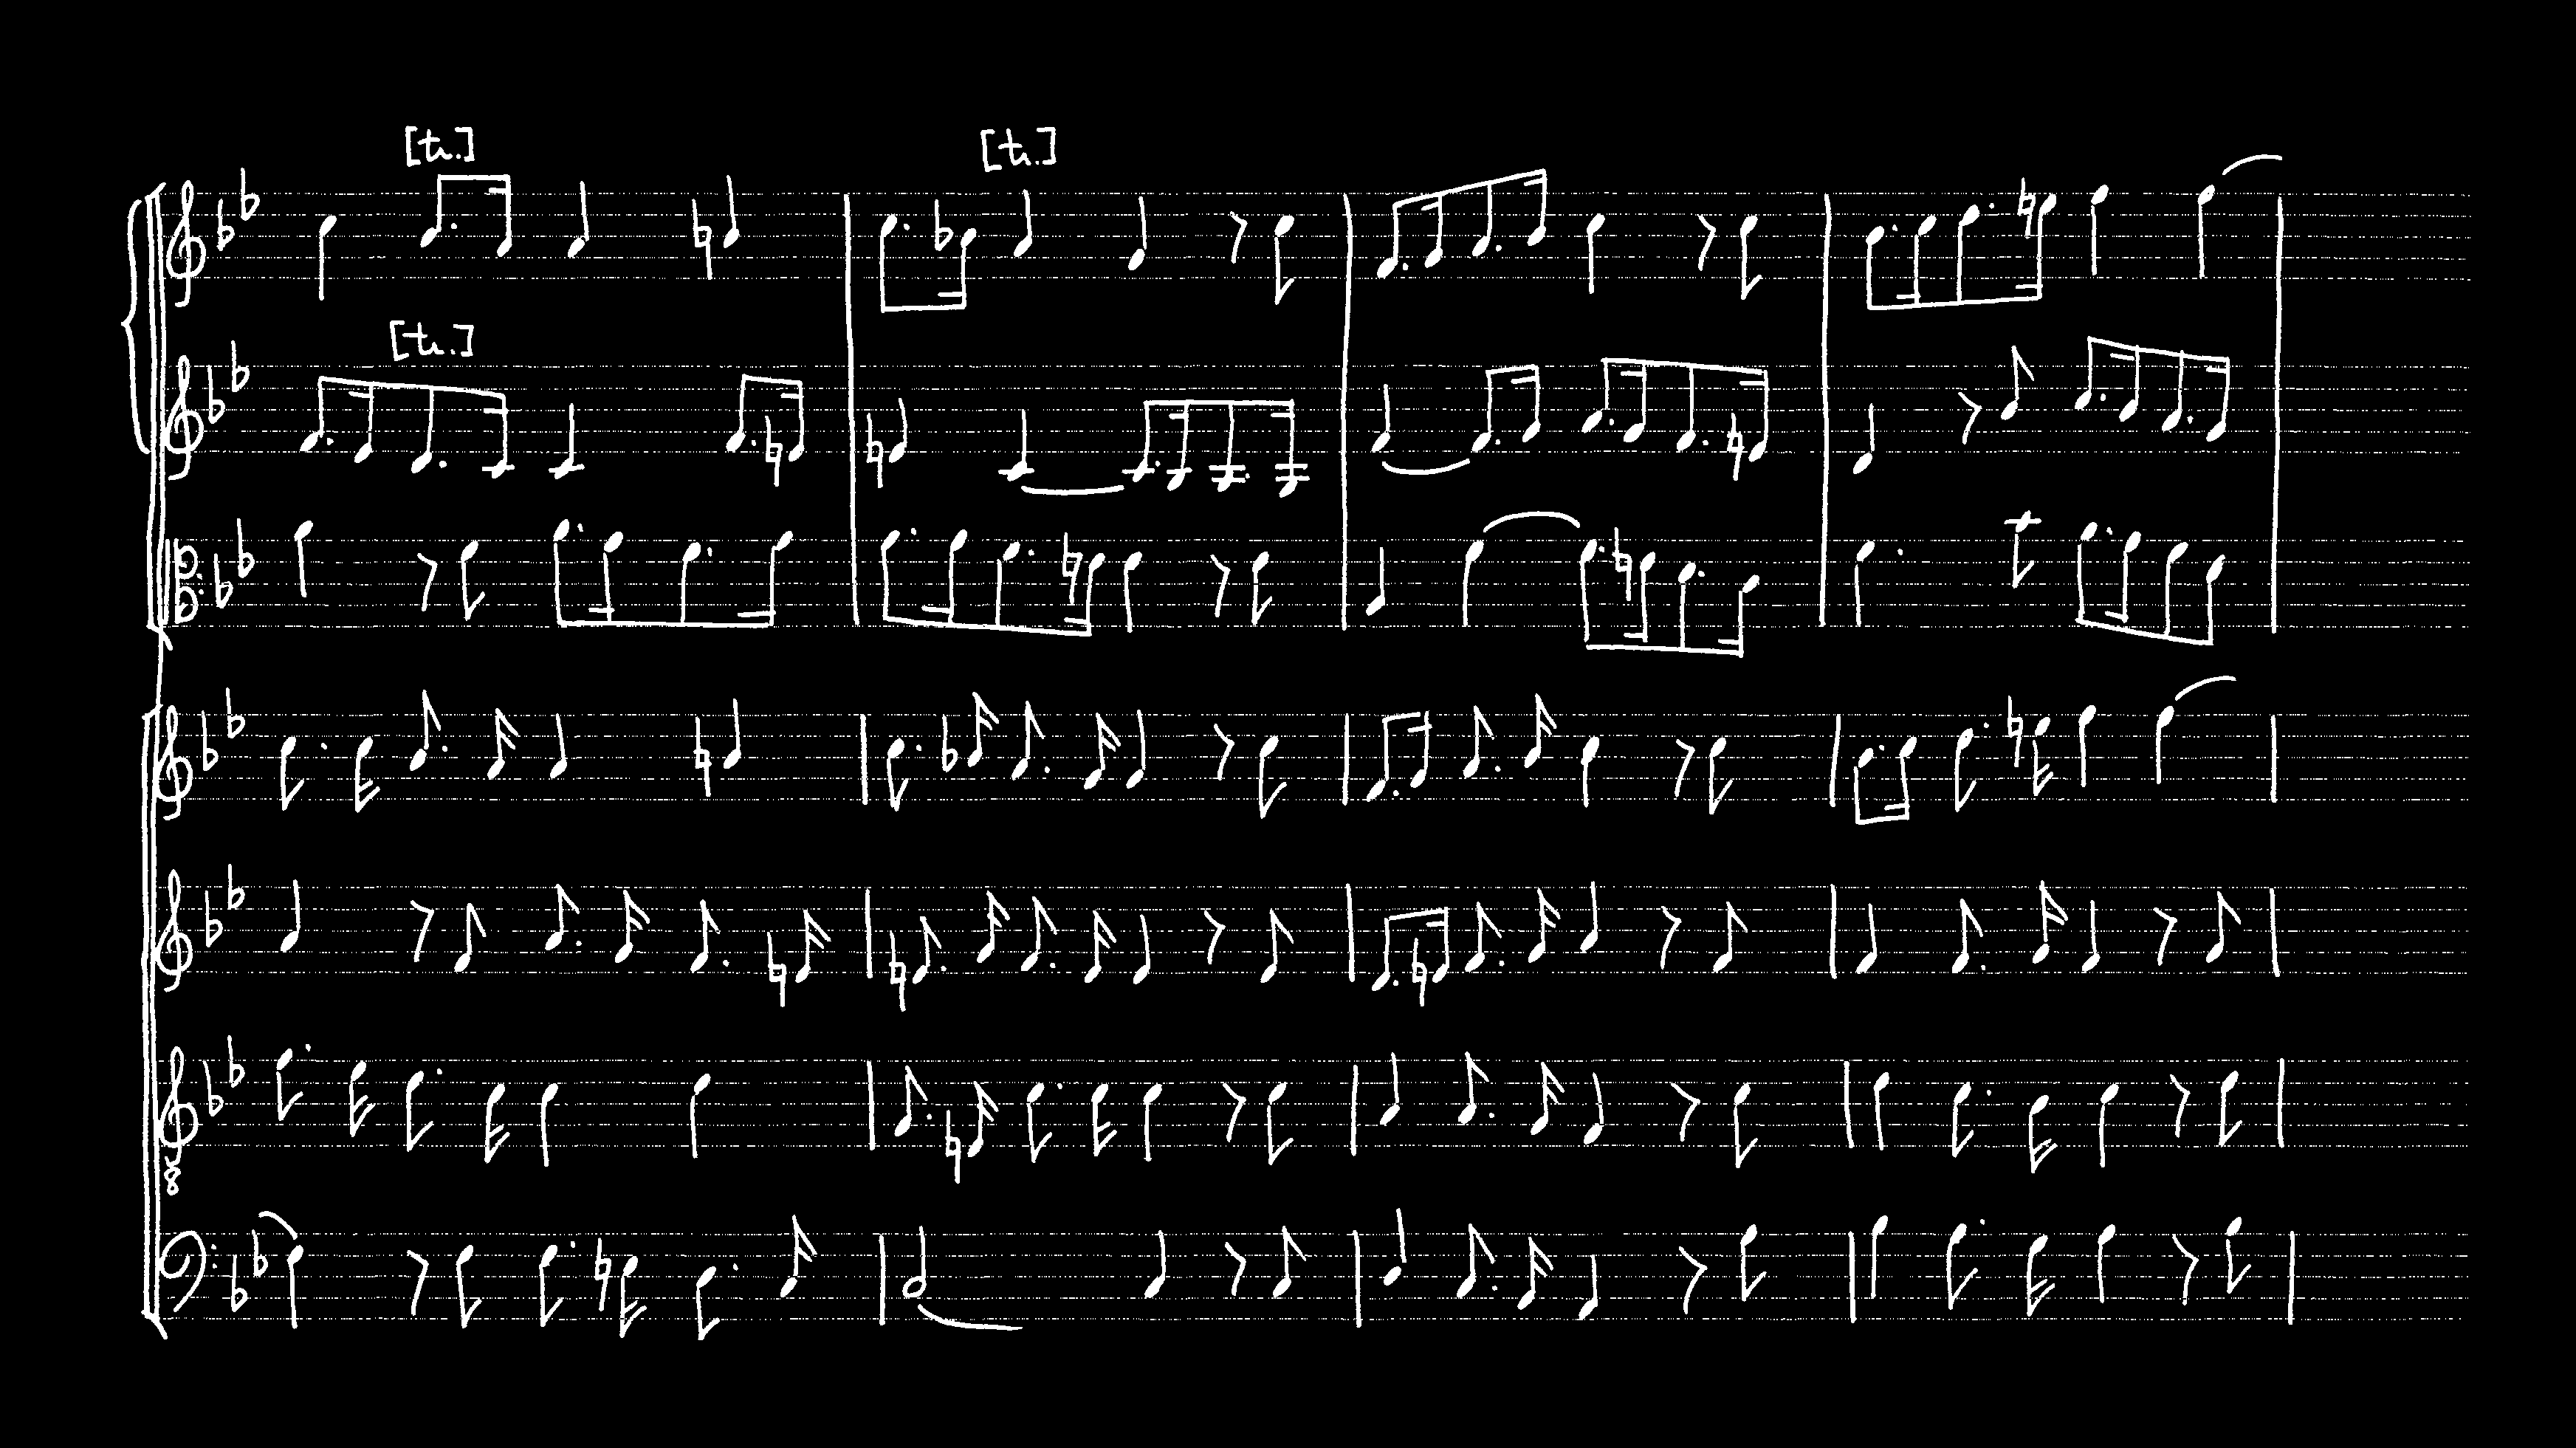 [tr.] [tr.]
[tr.]
8